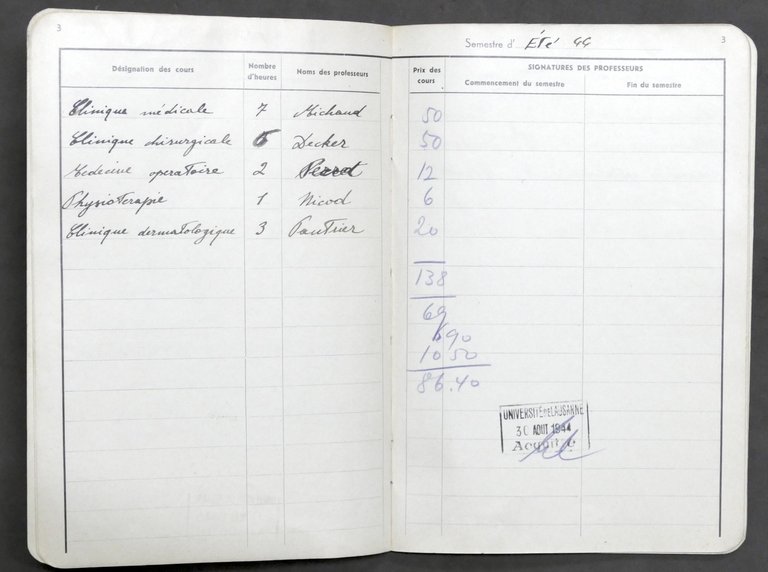 3
Désignation des cours
Nombre d'heures
Noms des professeurs
Clinique médicale 7 Michaud
Clinique chirurgicale 5 Decker
Medecine operatoire 2
Physioterapie 1 Nicod
Clinique dermatologique 3 Pautrier
Semestre d' Été 44
3
Prix des cours
SIGNATURES DES PROFESSEURS
Commencement du semestre
Fin du semestre
50
50
12
6
20
138
69
6 90
10 50
86.40
UNIVERSITÉ DE LAUSANNE
30 AOUT 1944
Acquitté